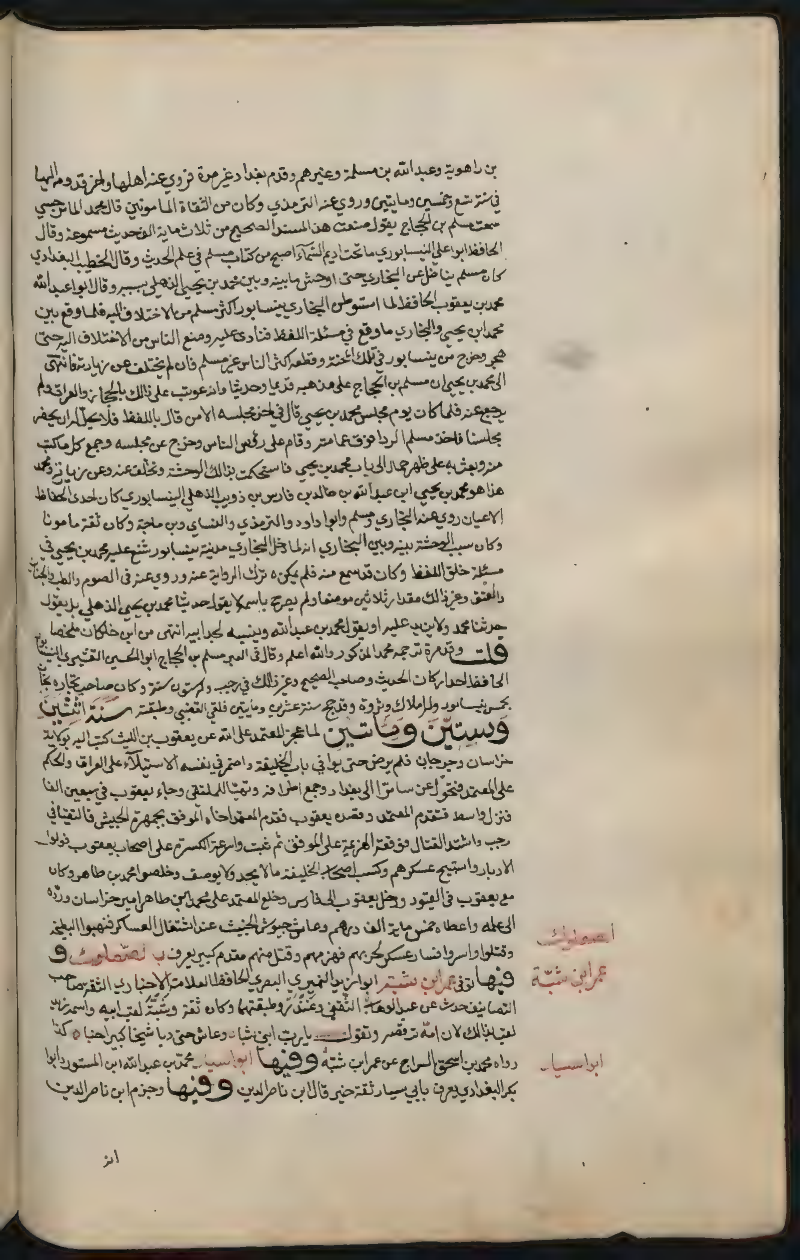 بن راهوية وعبد الله بن مسلمة وغيرهم وقدم بغداد غير مرة فروي عنه اهلها واخر قدومه اليها
في سنة تسع وخمسين ومايتين وروي عنه الترمذي وكان من الثقاة المامونين قال محمد الماسرجسي
سمعت مسلم بن الحجاج يقول صنفت هذا المسند الصحيح من ثلاث ماية الف حديث مسموعة وقال
الحافظ ابو علي النيسابوري ما تحت اديم السماء اصح من كتاب مسلم في علم الحديث وقال الخطيب البغدادي
كان مسلم يناضل عن البخاري حتى اوحش ما بينه وبين محمد بن يحيى الذهلي بسببه وقال ابو عبد الله
محمد بن يعقوب الحافظ لما استوطن البخاري نيسابور اكثر مسلم من الاختلاف اليه فلما وقع بين
محمد ابن يحيى والبخاري ما وقع في مسئلة اللفظ فنادى عليه ومنع الناس من الاختلاف اليه حتى
هجر وخرج من نيسابور في تلك المحنة وقطعه اكثر الناس غير مسلم فانه لم يختلف عن زيارته فانتهى
الى محمد بن يحيى ان مسلم بن الحجاج على مذهبه قديما وحديثا وانه عوتب على ذلك بالحجاز والعراق ولم
يرجع عنه فلما كان يوم مجلس محمد بن يحيى قال في اخر مجلسه الا من قال باللفظ فلا يحل له ان يحضر
مجلسنا فاخذ مسلم الردا فوق عمامته وقام على رؤس الناس وخرج عن مجلسه وجمع كل ما كتب
منه وبعث به على ظهر حمال الى باب محمد بن يحيى فاستحكمت بذلك الوحشة وتخلف عنه وعن زيارته ومحمد
هذا هو محمد بن يحيى ابن عبد الله بن خالد بن فارس بن ذويب الذهلي النيسابوري كان احدى الحفاظ
الاعيان روي عنه البخاري ومسلم وابو داود والترمذي والنساي وبن ماجة وكان ثقة مامونا
وكان سبب الوحشة بينه وبين البخاري انه لما دخل البخاري مدينة نيسابور شنع عليه محمد بن يحيى في
مسئلة خلق اللفظ وكان قد سمع منه فلم يمكنه ترك الرواية عنه وروي عنه في الصوم والطب والجنائز
والعتق وغير ذلك مقدار ثلاثين موضعا ولم يصرح باسمه لا يقول حدثنا محمد بن يحيى الذهلي بل يقول
حدثنا محمد ولا يزيد عليه او يقول محمد بن عبد الله وينسبه لجد ابيه انتهى من ابن خلكان ملخصا
قلت وقد مرة ترجمة محمد المذكور والله اعلم وقال في العبر مسلم بن الحجاج ابو الحسين القشيري النيسابوري
الحافظ احد اركان الحديث وصاحب الصحيح وغير ذلك في رجب وله ستون سنة وكان صاحب تجارة بخان
بحمس نيسابور وله املاك وثروة وقد حج سنة عشرين ومايتين فلقي القعنبي وطبقته سنة اثنتين
وستين ومائتين لما عجز المعتمد على الله عن يعقوب بن الليث كتب اليه بولاية
خراسان وجرجان فلم يرض حتى يوافي باب الخليفة واضمر في نفسه الاستيلاء على العراق والحكم
على المعتمد فتحول عن سامرا الى بغداد وجمع اطرافه وتهيا للملتقى وجاء يعقوب في سبعين الفا
فنزل واسط فتقدم المعتمد وقصده يعقوب فقدم المعتمد اخاه الموفق بجمهرة الجيش فالتقيا في
رجب واشتد القتال فوقعت الهزيمة على الموفق ثم ثبت واسرعة الكسرة على اصحاب يعقوب فولوا
الادبار واستبيح عسكرهم وكسب اصحاب الخليفة ما لا يحد ولا يوصف وخلصوا محمد بن طاهر وكان
مع يعقوب في القيود ودخل يعقوب الى فارس وخلع المعتمد على محمد ابن طاهر امير خراسان ورده
الى عمله واعطاه خمس ماية الف درهم وعاش جيوش الخبيث عند اشتغال العساكر فنهبوا البطيحة
وقتلوا واسروا فسار عسكر لحربهم فهزمهم وقتل منهم مقدم كبير يعرف ب الصعلوك و
فيها توفي عمر ابن شبة ابو زيد النميري البصري الحافظ العلامة الاخباري الثقة صاحب
التصانيف حدث عن عبد الوهاب الثقفي وغندر وطبقتهما وكان ثقة وشبة لقب ابيه واسمه زيد
لقب بذلك لان امه ترقصه وتقول يا رب ابني شبا وعاش حتى دبا شيخا كبيرا خبا كذا
رواه محمد بن اسحق السراج عن عمر ابن شبة وفيها ابو اسيار محمد بن عبد الله ابن المستورد ابو
بكر البغدادي يعرف بابي سيار ثقة خير قال ابن ناصر الدين وفيها وجزم ابن ناصر الدين
الصعلوك
عمر ابن شبة
ابو اسيار
انه